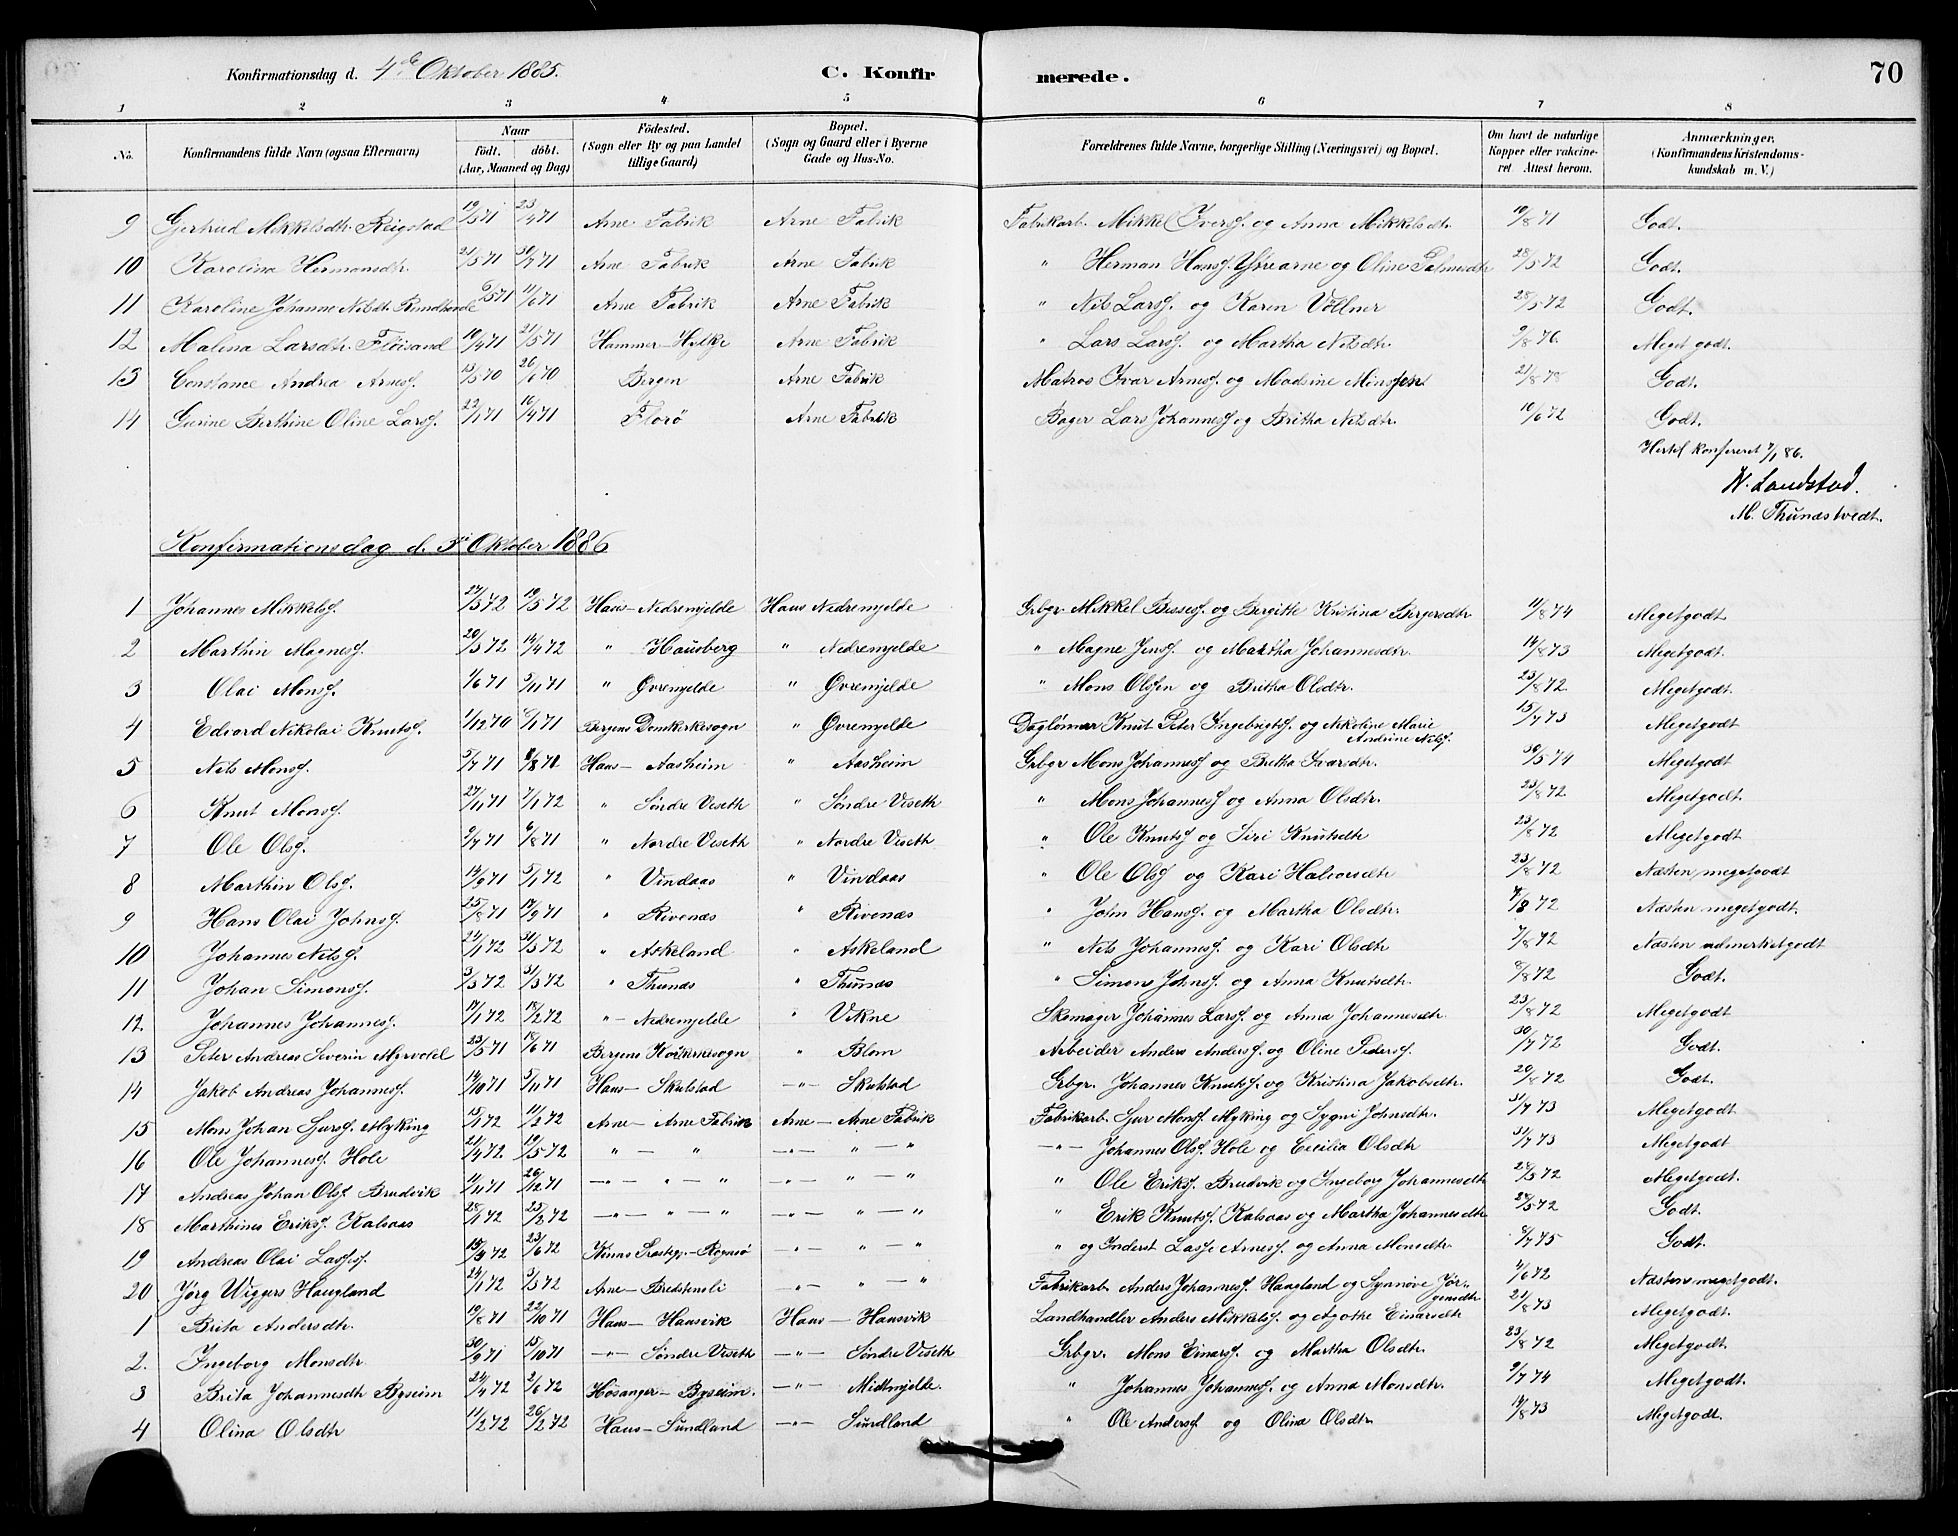 Konfirmationsdag d. 4de Oktober 1885. C. Konfirmerede. 70
1 2 3 4 5 6 7 8
No. Konfirmandens fulde Navn (ogsaa Efternavn) Naar født. døbt. (Aar, Maaned og Dag) Fødested. (Sogn eller By og paa Landet tillige Gaard) Bopæl. (Sogn og Gaard eller i Byerne Gade og Hus-No. Forældrenes fulde Navne, borgerlige Stilling (Næringsvei) og Bopæl. Om havt de naturlige Kopper eller vakcineret. Attest herom. Anmærkninger. (Konfirmandens Kristendomskundskab m. V.)
9 Gertrud Mikkelsdtr. Reigstad 19/3 71 23/4 71 Arne Fabrik Arne Fabrik Fabrikarb. Mikkel Iversf. og Anna Mikkelsdtr. 19/8 71 Godt.
10 Karolina Hermansdtr. 21/5 71 30/7 71 Arne Fabrik Arne Fabrik " Herman Hansf. Ytrearne og Oline 28/5 72 Godt.
11 Karoline Johanne Nilsdt. 11/6 71 Arne Fabrik Arne Fabrik " Nils Larsf. og Karen Vollner 28/5 72 Godt.
12 Malena Larsdtr. Fløisand 19/4 71 21/5 71 Hammer-Hylkje Arne Fabrik " Lars Larsf. og Martha Nilsdtr. 9/8 76. Meget godt.
13 Constance Andrea Arnesf. 13/5 70 26/6 70 Bergen Arne Fabrik Matros Ivar Arnesf. og Madsine 21/8 78 Godt.
14 Gurine Berthine Oline Larsf. 22/1 71 16/4 71 Florø Arne Fabrik Bager Lars Johannesf og Britha Nilsdtr. 10/6 72 Godt.
Hertil konfereret 7/1 86.
N. Landstad.
M. Thunæstvedt.
Konfirmationsdag d. 3die Oktober 1886
1 Johannes Mikkelsf. 27/3 72 19/5 72 Haus-Nedremjelde Haus Nedremjelde Grbgr. Mikkel og Bergitte Kristina Bergersdtr 11/8 74 Megetgodt
2 Marthin Magnesf. 20/3 72 14/4 72 " Hausberg " Nedremjelde " Magne Jensf. og Martha Johannesdtr. 14/8 73 Megetgodt.
3 Olai Monsf. 1/6 71 5/11 71 " Øvremjelde " Øvremjelde " Mons Olsen og Britha Olsdtr. 23/8 72. Megetgodt.
4 Edvard Nikolai Knutsf. 1/12 70 8/1 71 Bergens Domkirkesogn " Øvremjelde Daglønner Knut Peter Ingebrigtsf. og Nikoline Marie Andrine Nilsf. 15/7 73 Megetgodt
5 Nils Monsf. 5/7 71 6/8 71 Haus- Aasheim " Aasheim Grbgr Mons Johannesf og Britha Ivarsdtr. 30/5 74 Megetgodt
6 Knut Monsf. 27/11 71 7/1 72 " Søndre Viseth " Søndre Viseth " Mons Johannesf og Anna Olsdtr. 23/8 72. Megetgodt.
7 Ole Olsf. 2/7 71 6/8 71 " Nordre Viseth " Nordre Viseth " Ole Knutsf og Siri Knutsdtr 23/8 72 Megetgodt
8 Marthin Olsf. 14/9 71 5/1 72 " Vindaas " Vindaas " Ole Olsf og Kari Halvorsdtr 23/8 72 Næsten megetgodt
9 Hans Olai Johnsf. 25/8 71 17/9 71 " Rivenæs " Rivenæs " John Hansf. og Martha Olsdtr. 7/8 72 Næsten megetgodt.
10 Johannes Nilsf. 24/1 72 31/3 72 " Askeland " Askeland " Nils Johannesf. og Kari Olsdtr 7/8 72 Næsten udmerketgodt
11 Johan Simonsf. 3/3 72 31/3 72 " Thunæs " Thunæs " Simons Johnsf. og Anna Knutsdtr. 8/8 72 Godt.
12. Johannes Johannesf. 17/1 72 18/2 72 "-Nedremjelde " Vikne Skomager Johannes Larsf. og Anna Johannesdtr. 23/8 72 Megetgodt
13 Peter Andreas Severin Myrvold 23/5 71 18/6 71 Bergens Korskirkesogn " Blom Arbeider Anders Andersf. og Oline Pedersf. 30/7 72 Godt.
14 Jakob Andreas Johannesf. 14/10 71 5/11 71 Haus- Skulstad -"- Skulstad Grbgr. Johannes Knutsf. og Kristina Jakobsdtr. 20/8 72 Godt.
15 Mons Johan Sjursf. Myking 15/1 72 11/2 72 Arne- Arne Fabrik Arne - Arne Fabrik Fabrikarb. Sjur Monsf. Myking og Sygni Johnsdtr. 31/7 73 Megetgodt.
16 Ole Johannesf. Hole 21/4 72 19/5 72 " - " -"- " - " -"- Johannes Olsf. Hole og Cecilia Olsdtr 31/7 73 Megetgodt
17 Andreas Johan Olsf Brudvik 11/11 71 26/12 71 -"- " - " -"- " - " " Ole Eriksf. Brudvik og Ingeborg Johannesdtr 28/5 72 Megetgodt.
18 Marthines Eriksf. Kalsaas 28/1 72 25/2 72 -"- " - " -"- " - " " Erik Knutsf. Kalsaas og Martha Johannesdtr 28/5 72 Godt.
19 Andreas Olai Lassesf. 15/4 72 23/6 72 Kinns Præstgj.-Rognsø -"- " - " " og Inderst Lasse Arnesf. og Anna Monsdtr. 8/7 75 Godt.
20 Jørg Wiggers Haugland 24/1 72 3/3 72 Arne-Bredstenli -"- " - " Fabrikarb. Anders Johannesf. Haugland og Synnøve Jørgensdtr 4/6 72 Næsten megetgodt.
1 Brita Andersdtr. 19/8 71 22/10 71 Haus- Hausvik Haus - Hausvik Landhandler Anders Mikkelsf. og Agothe Einarsdtr 21/8 73 Megetgodt.
2. Ingeborg Monsdtr. 30/9 71 15/10 71 -"- Søndre Viseth -"- Søndre Viseth Grbgr. Mons Einarsf. og Martha Olsdtr. 23/8 72 Megetgodt
3 Brita Johannesdtr Byseim 24/4 72 2/6 72 Hosanger- Byseim. -"- Midtmjelde. " Johannes Johannesf. og Anna Monsdtr. 9/7 74 Megetgodt.
4 Olina Olsdtr 11/2 72 26/2 72 Haus-Sundland -"- Sundland " Ole Andersf og Olina Olsdtr. 14/8 73 Megetgodt.